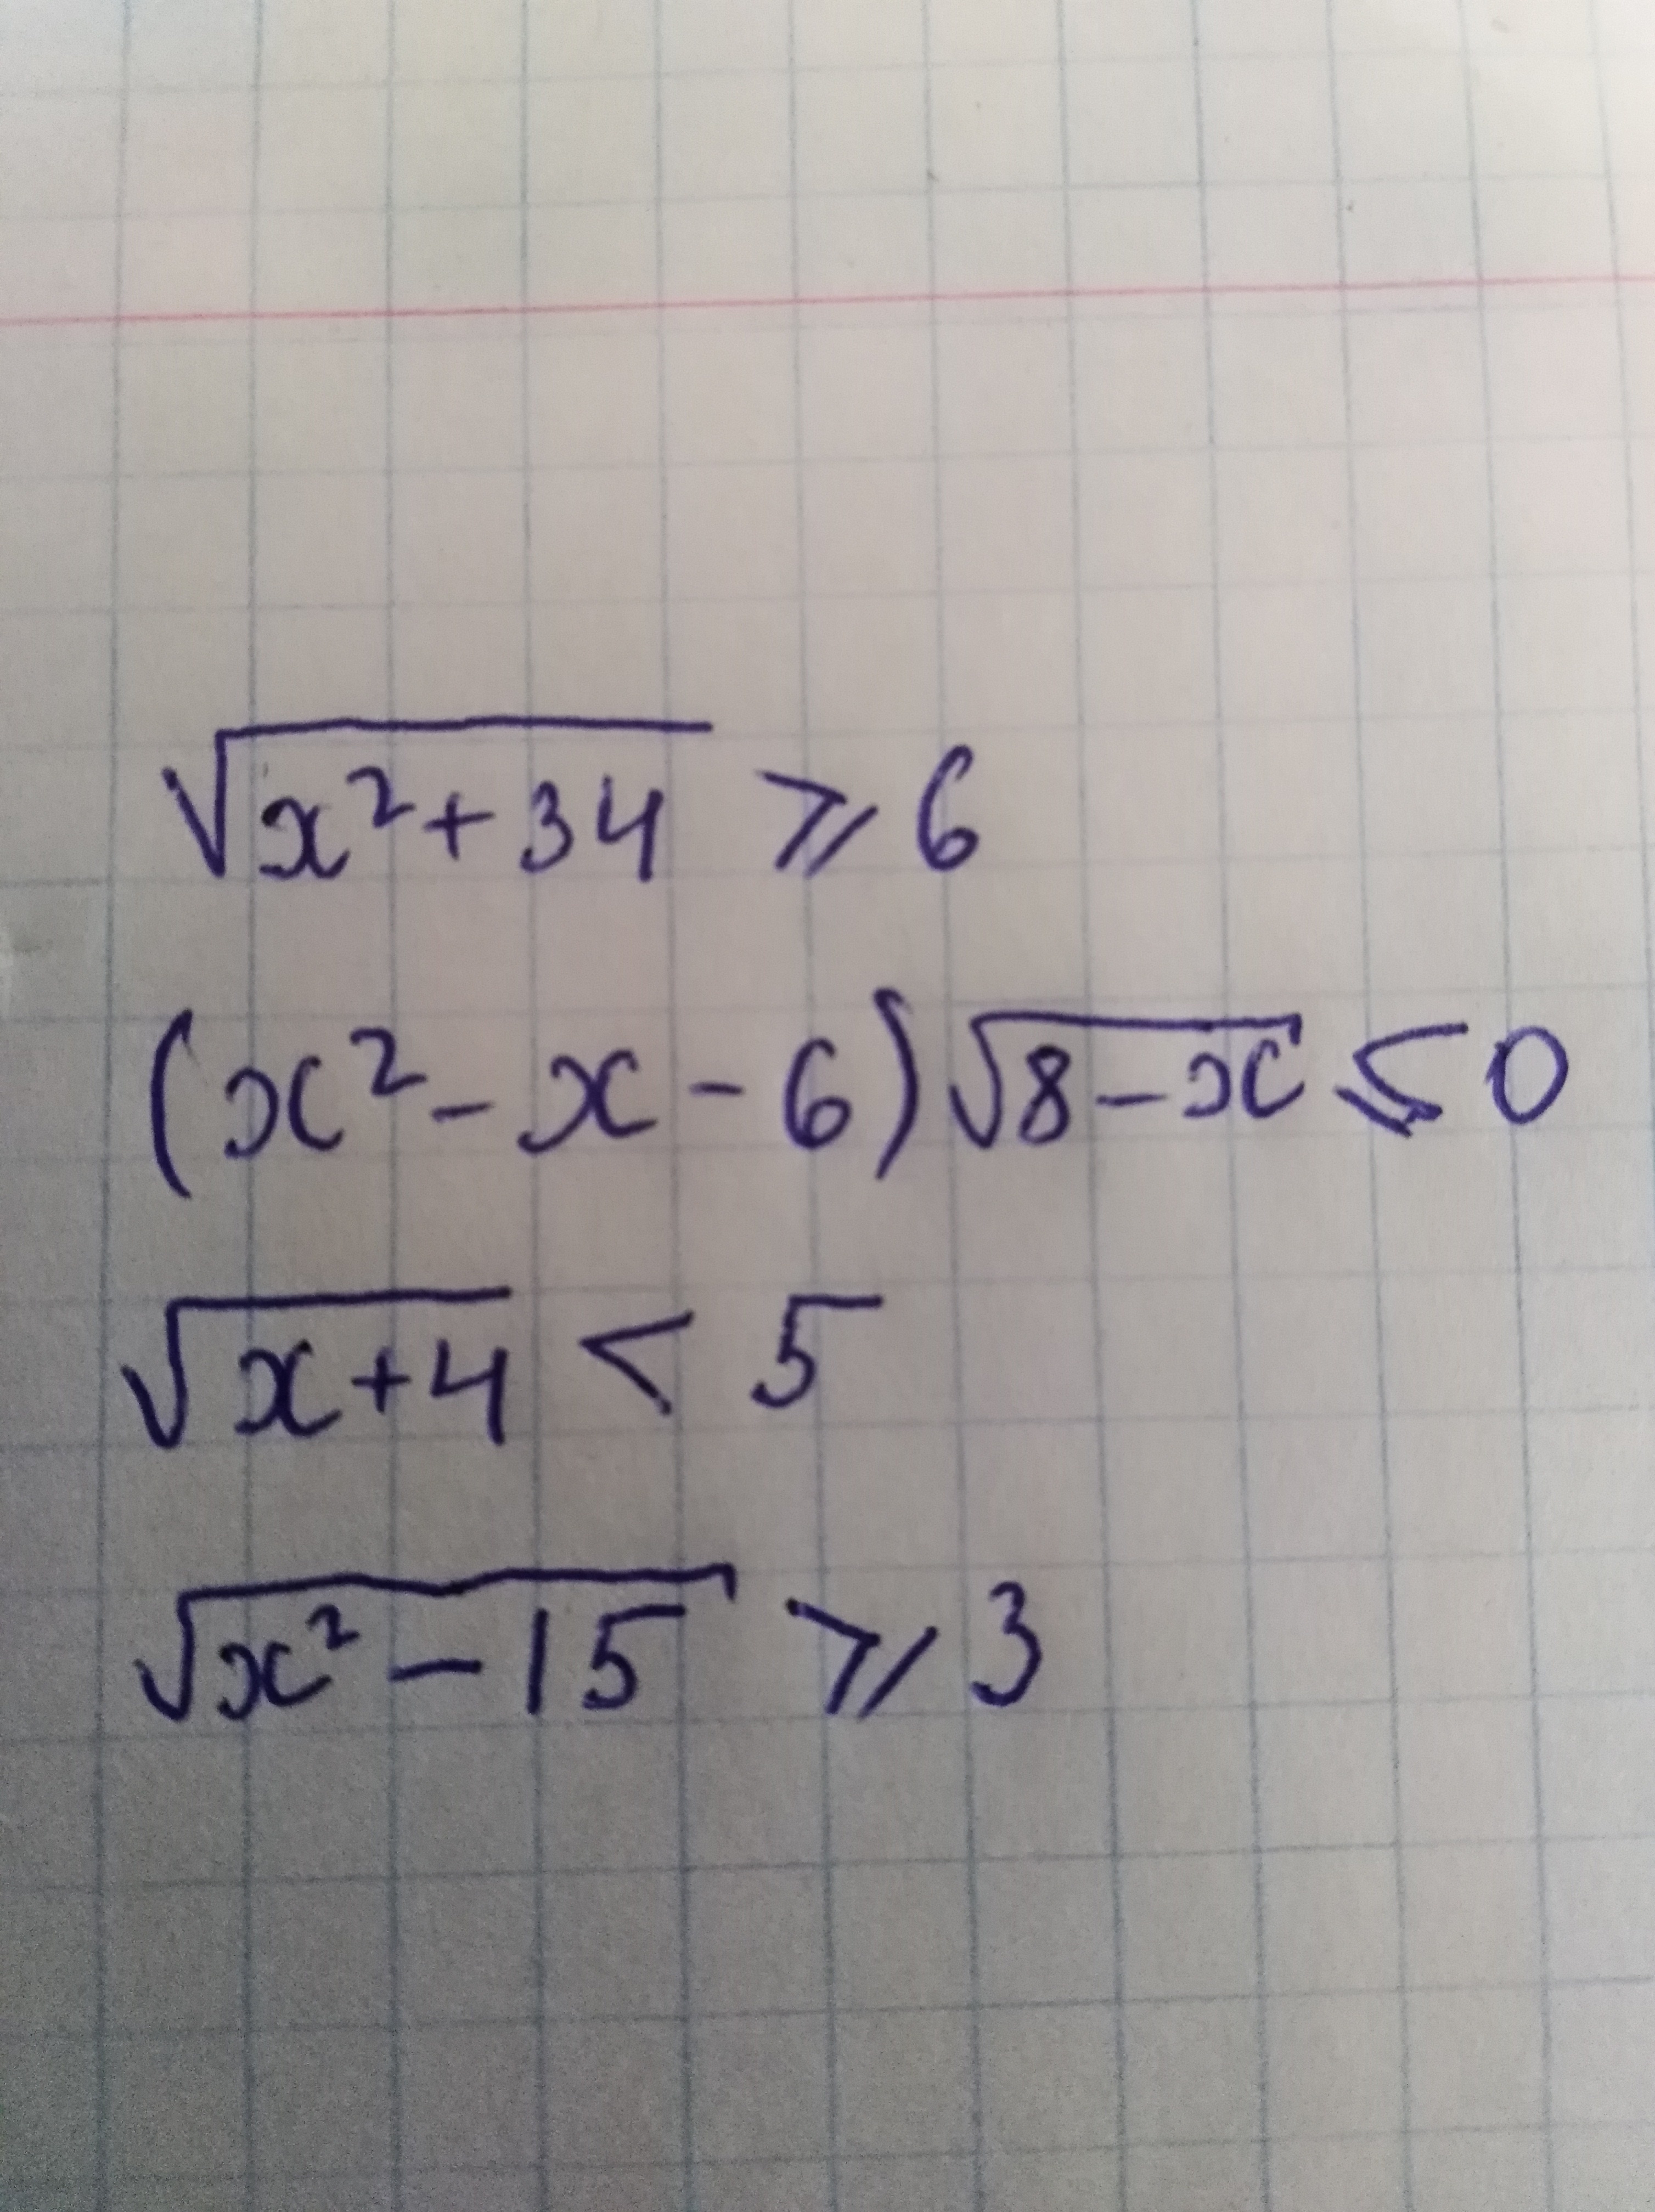 √(x²+34) ⩾ 6
(x²-x-6)√(8-x) ≤ 0
√(x+4) < 5
√(x²-15) ⩾ 3